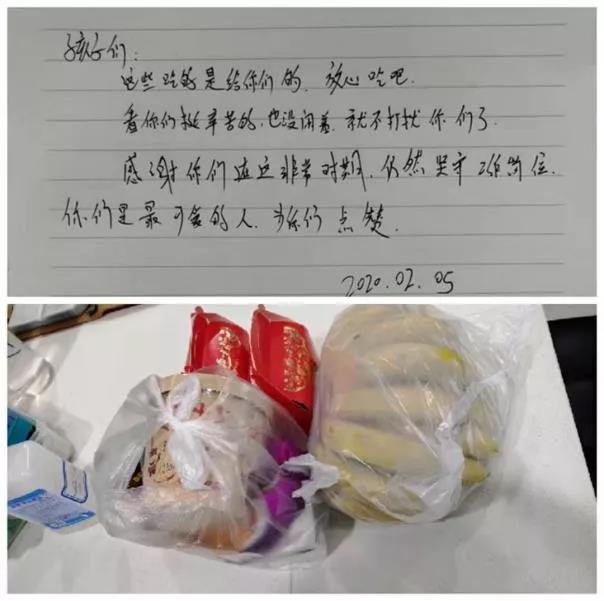 孩子们:
这些吃的是给你们的, 放心吃吧.
看你们挺辛苦的, 也没闲着, 就不打扰你们了.
感谢你们在这非常时期, 仍然坚守工作岗位.
你们是最可爱的人, 为你们点赞.
2020.02.05